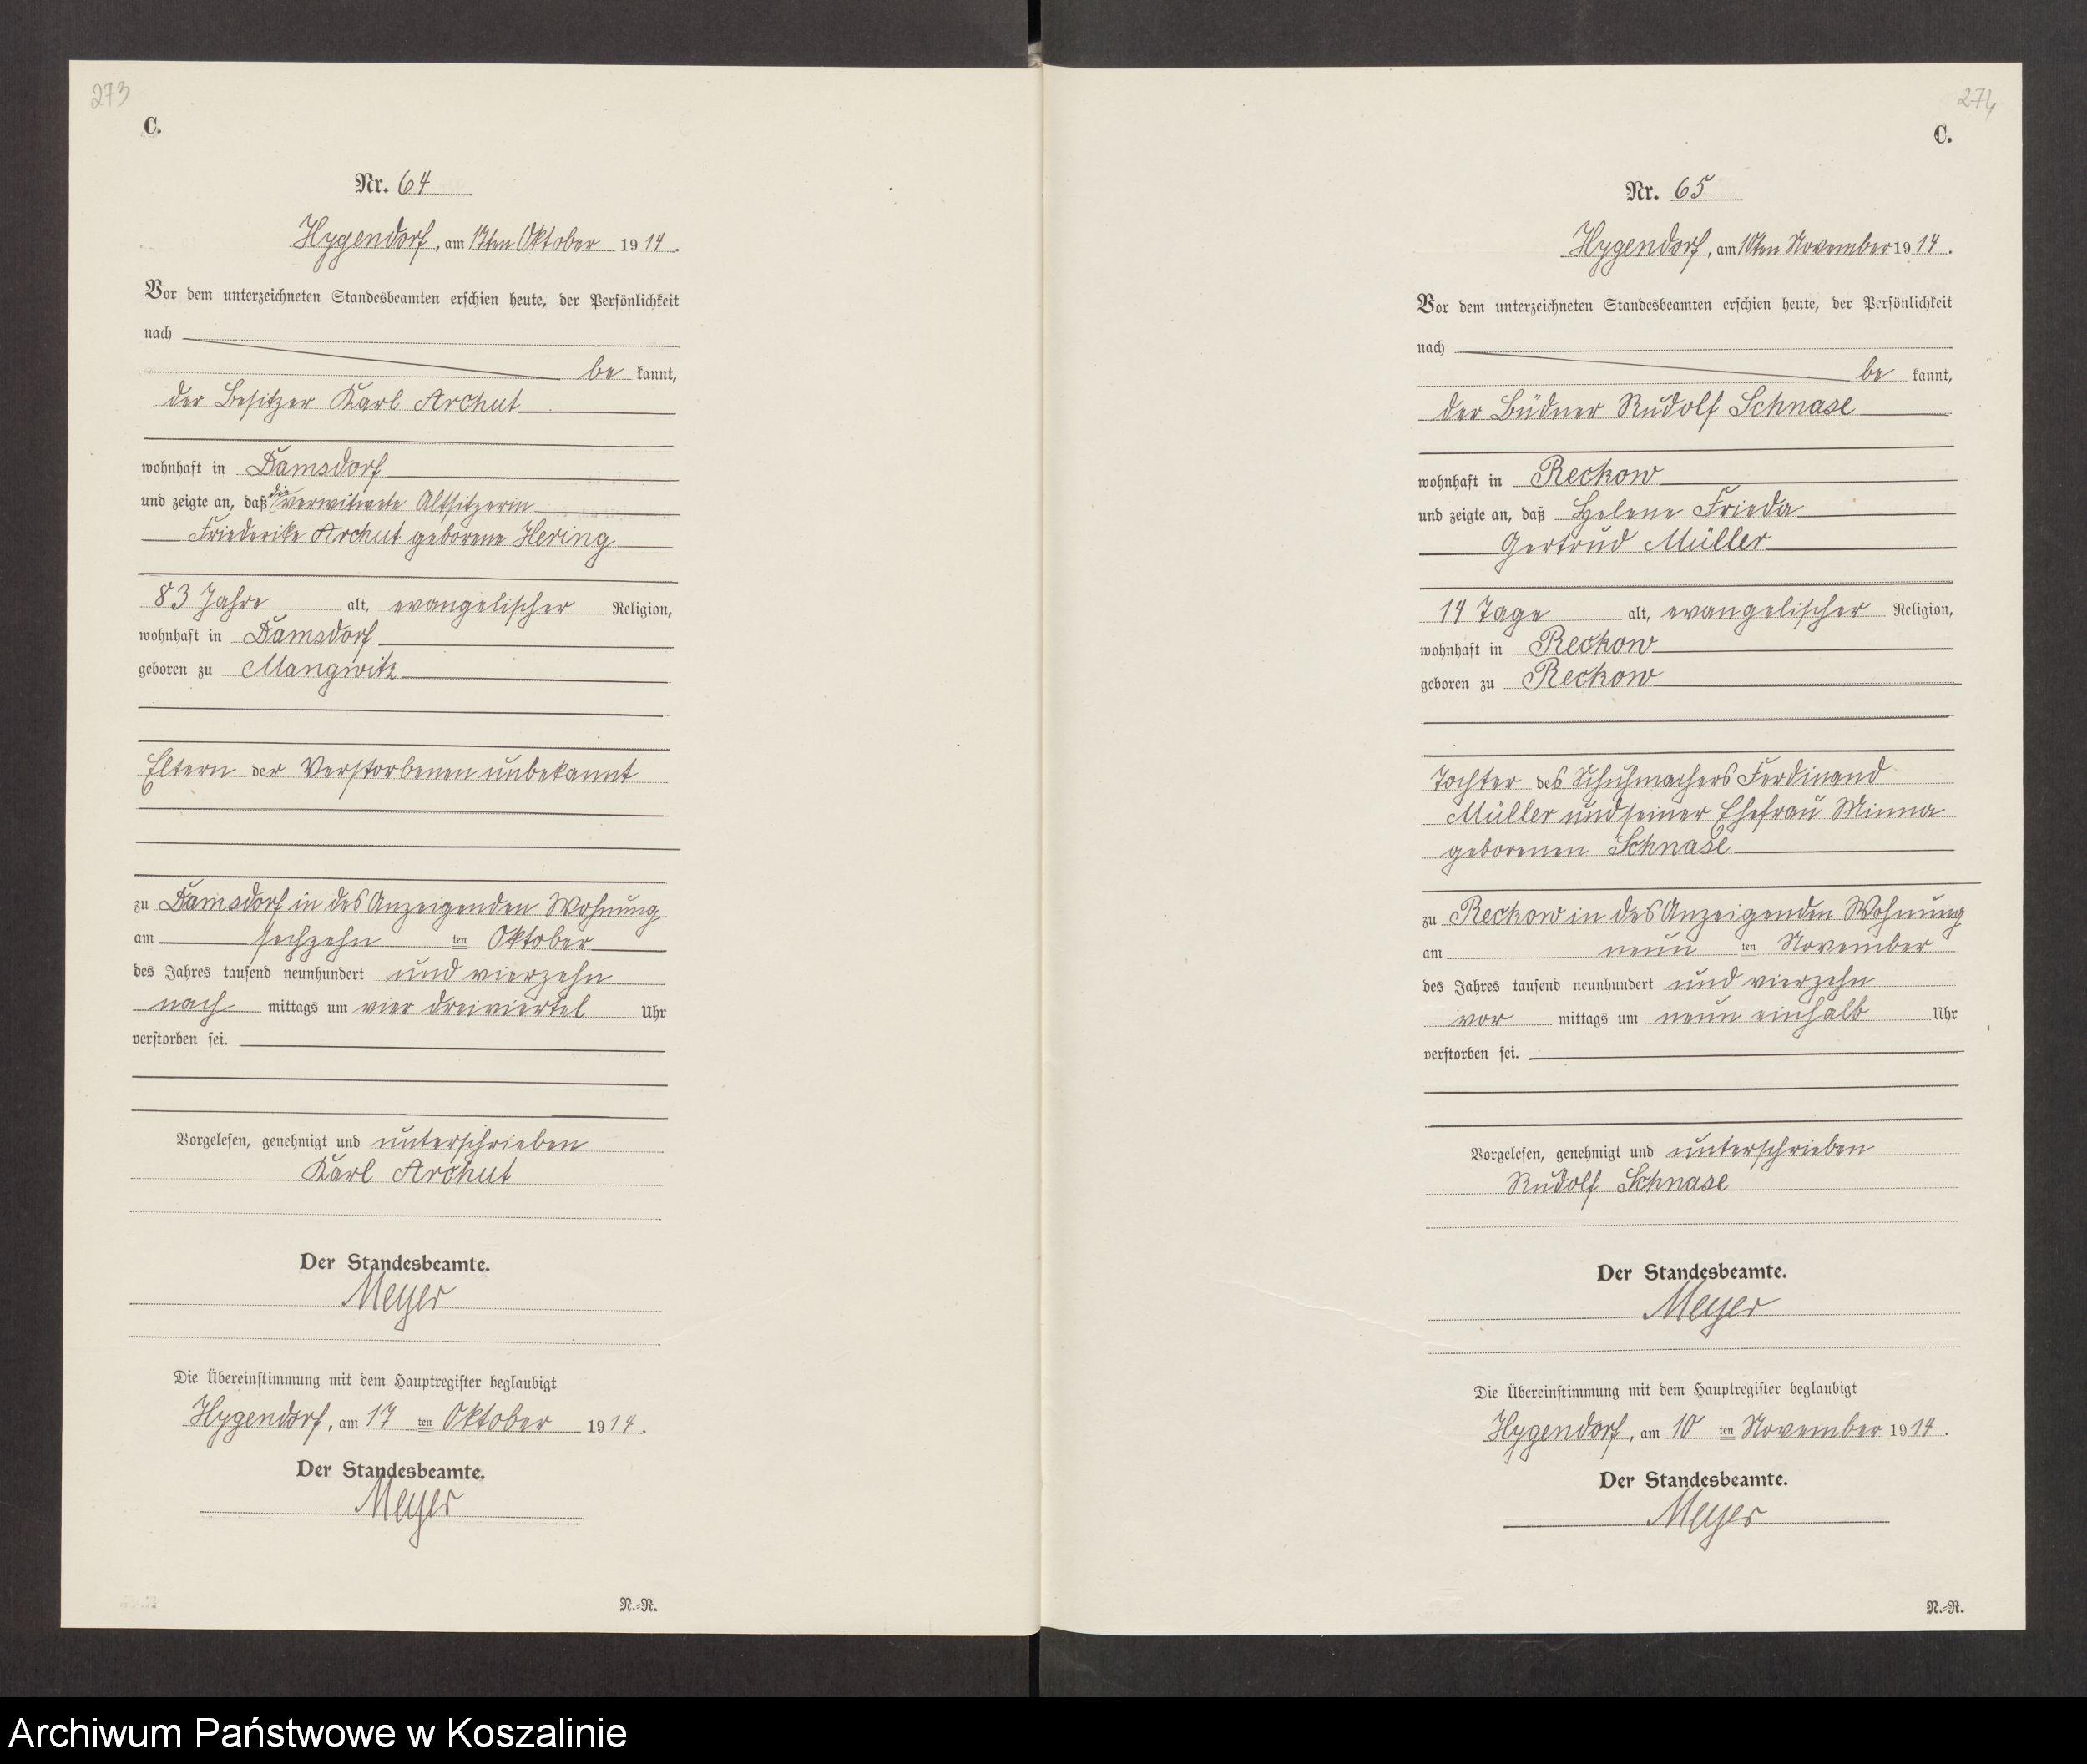 273
C.
Nr. 64
Hygendorf, am 17ten Oktober 1914.
Vor dem unterzeichneten Standesbeamten erschien heute, der Persönlichkeit
nach
be kannt,
der Besitzer Karl Archut
wohnhaft in Damsdorf
und zeigte an, daß die verwitwete Altsitzerin
Friederike Archut geborene Hering
83 Jahre alt, evangelischer Religion,
wohnhaft in Damsdorf
geboren zu Mangwitz
Eltern der Verstorbenen unbekannt
zu Damsdorf in des Anzeigenden Wohnung
am sechzehn ten Oktober
des Jahres tausend neunhundert und vierzehn
nach mittags um vier dreiviertel Uhr
verstorben sei.
Vorgelesen, genehmigt und unterschrieben
Karl Archut
Der Standesbeamte.
Meyer
Die Übereinstimmung mit dem Hauptregister beglaubigt
Hygendorf, am 17 ten Oktober 1914.
Der Standesbeamte.
Meyer
N.-R.
274
C.
Nr. 65
Hygendorf, am 10ten November 1914.
Vor dem unterzeichneten Standesbeamten erschien heute, der Persönlichkeit
nach
be kannt,
der Büdner Rudolf Schnase
wohnhaft in Reckow
und zeigte an, daß Helene Frieda
Gertrud Müller
14 Tage alt, evangelischer Religion,
wohnhaft in Reckow
geboren zu Reckow
Tochter des Schuhmachers Ferdinand
Müller und seiner Ehefrau Minna
geborenen Schnase
zu Reckow in des Anzeigenden Wohnung
am neun ten November
des Jahres tausend neunhundert und vierzehn
vor mittags um neun einhalb Uhr
verstorben sei.
Vorgelesen, genehmigt und unterschrieben
Rudolf Schnase
Der Standesbeamte.
Meyer
Die Übereinstimmung mit dem Hauptregister beglaubigt
Hygendorf, am 10 ten November 1914.
Der Standesbeamte.
Meyer
N.-R.
Archiwum Państwowe w Koszalinie